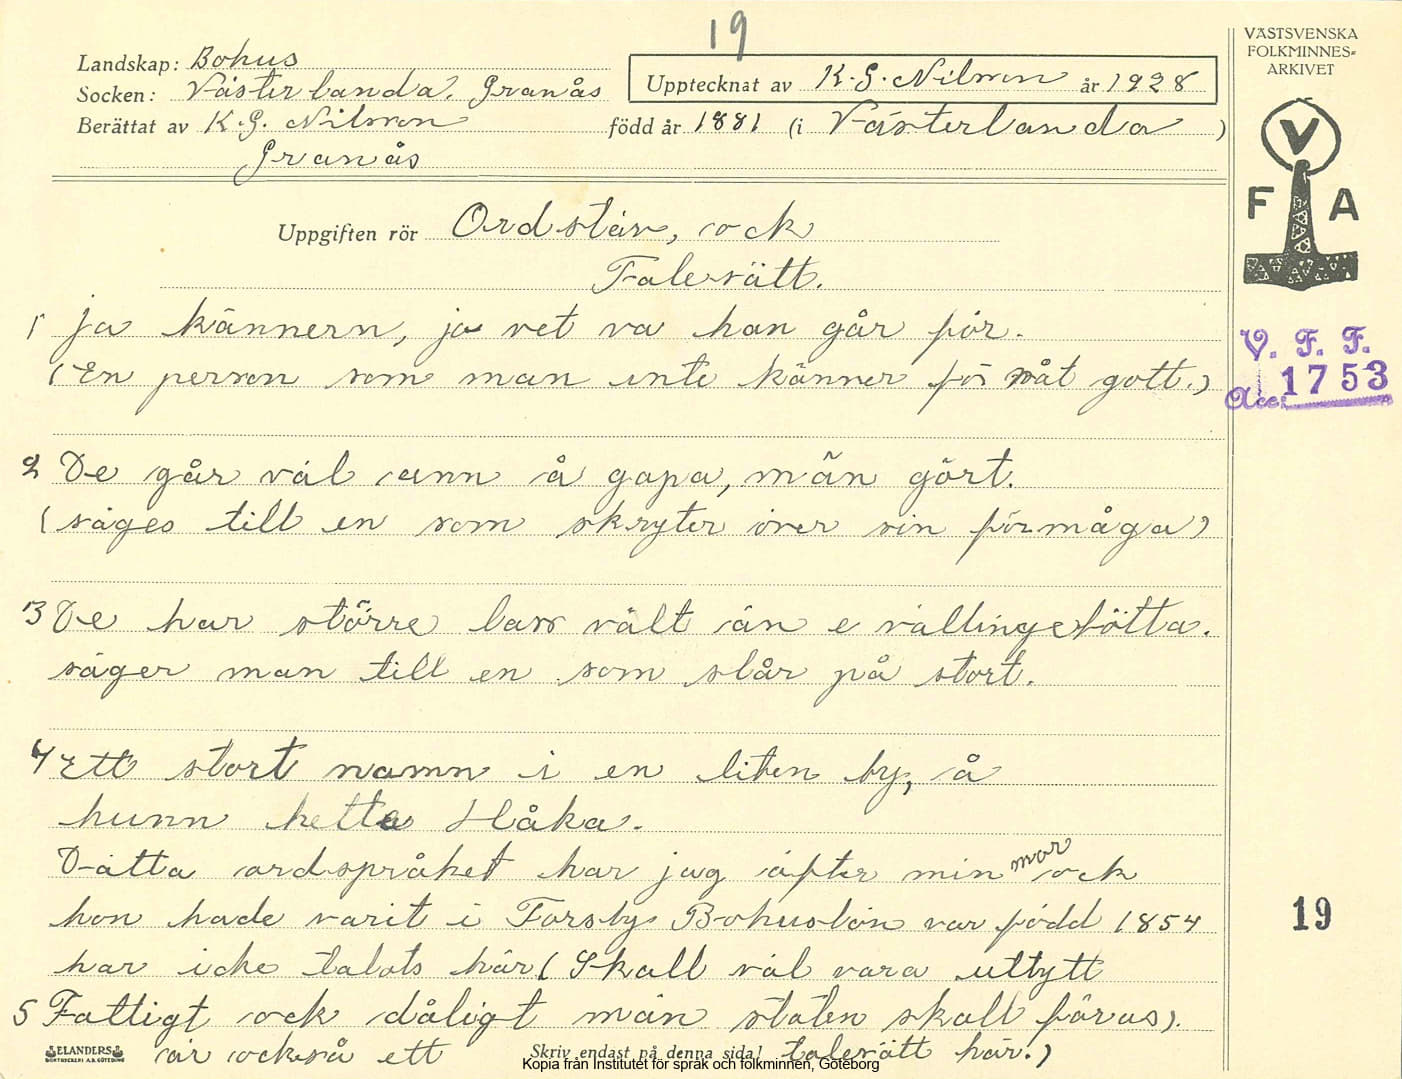 19
VÄSTSVENSKA
FOLKMINNES-
ARKIVET
Landskap: Bohus
Socken: Västerlanda. Granås
Upptecknat av K.G. Nilsson år 1928
Berättat av K.G. Nilsson född år 1881 (i Västerlanda)
Granås
V
F A
Uppgiften rör Ordstäv, ock
Talesätt.
V. F. F.
Acc: 1753
1 Ja kännern, ja vet va han går för.
(En person som man inte känner för nåt gott.)
2 De går väl ann å gapa, män gört.
(säges till en som skryter över sin förmåga)
3 De har större lass vält än e vällingebötta.
säger man till en som slår på stort.
4 Ett stort namn i en liten by, å
hunn hette Håka.
Dätta ordspråket har jag äfter min mor ock
hon hade varit i Forsby Bohuslän var född 1854
har icke talats här (Skall väl vara uttytt
5 Fattigt ock dåligt män staten skall föras).
är också ett talesätt här.)
19
ELANDERS
BOKTRYCKERI A.B. GÖTEBORG
Skriv endast på denna sida!
Kopia från Institutet för språk och folkminnen, Göteborg